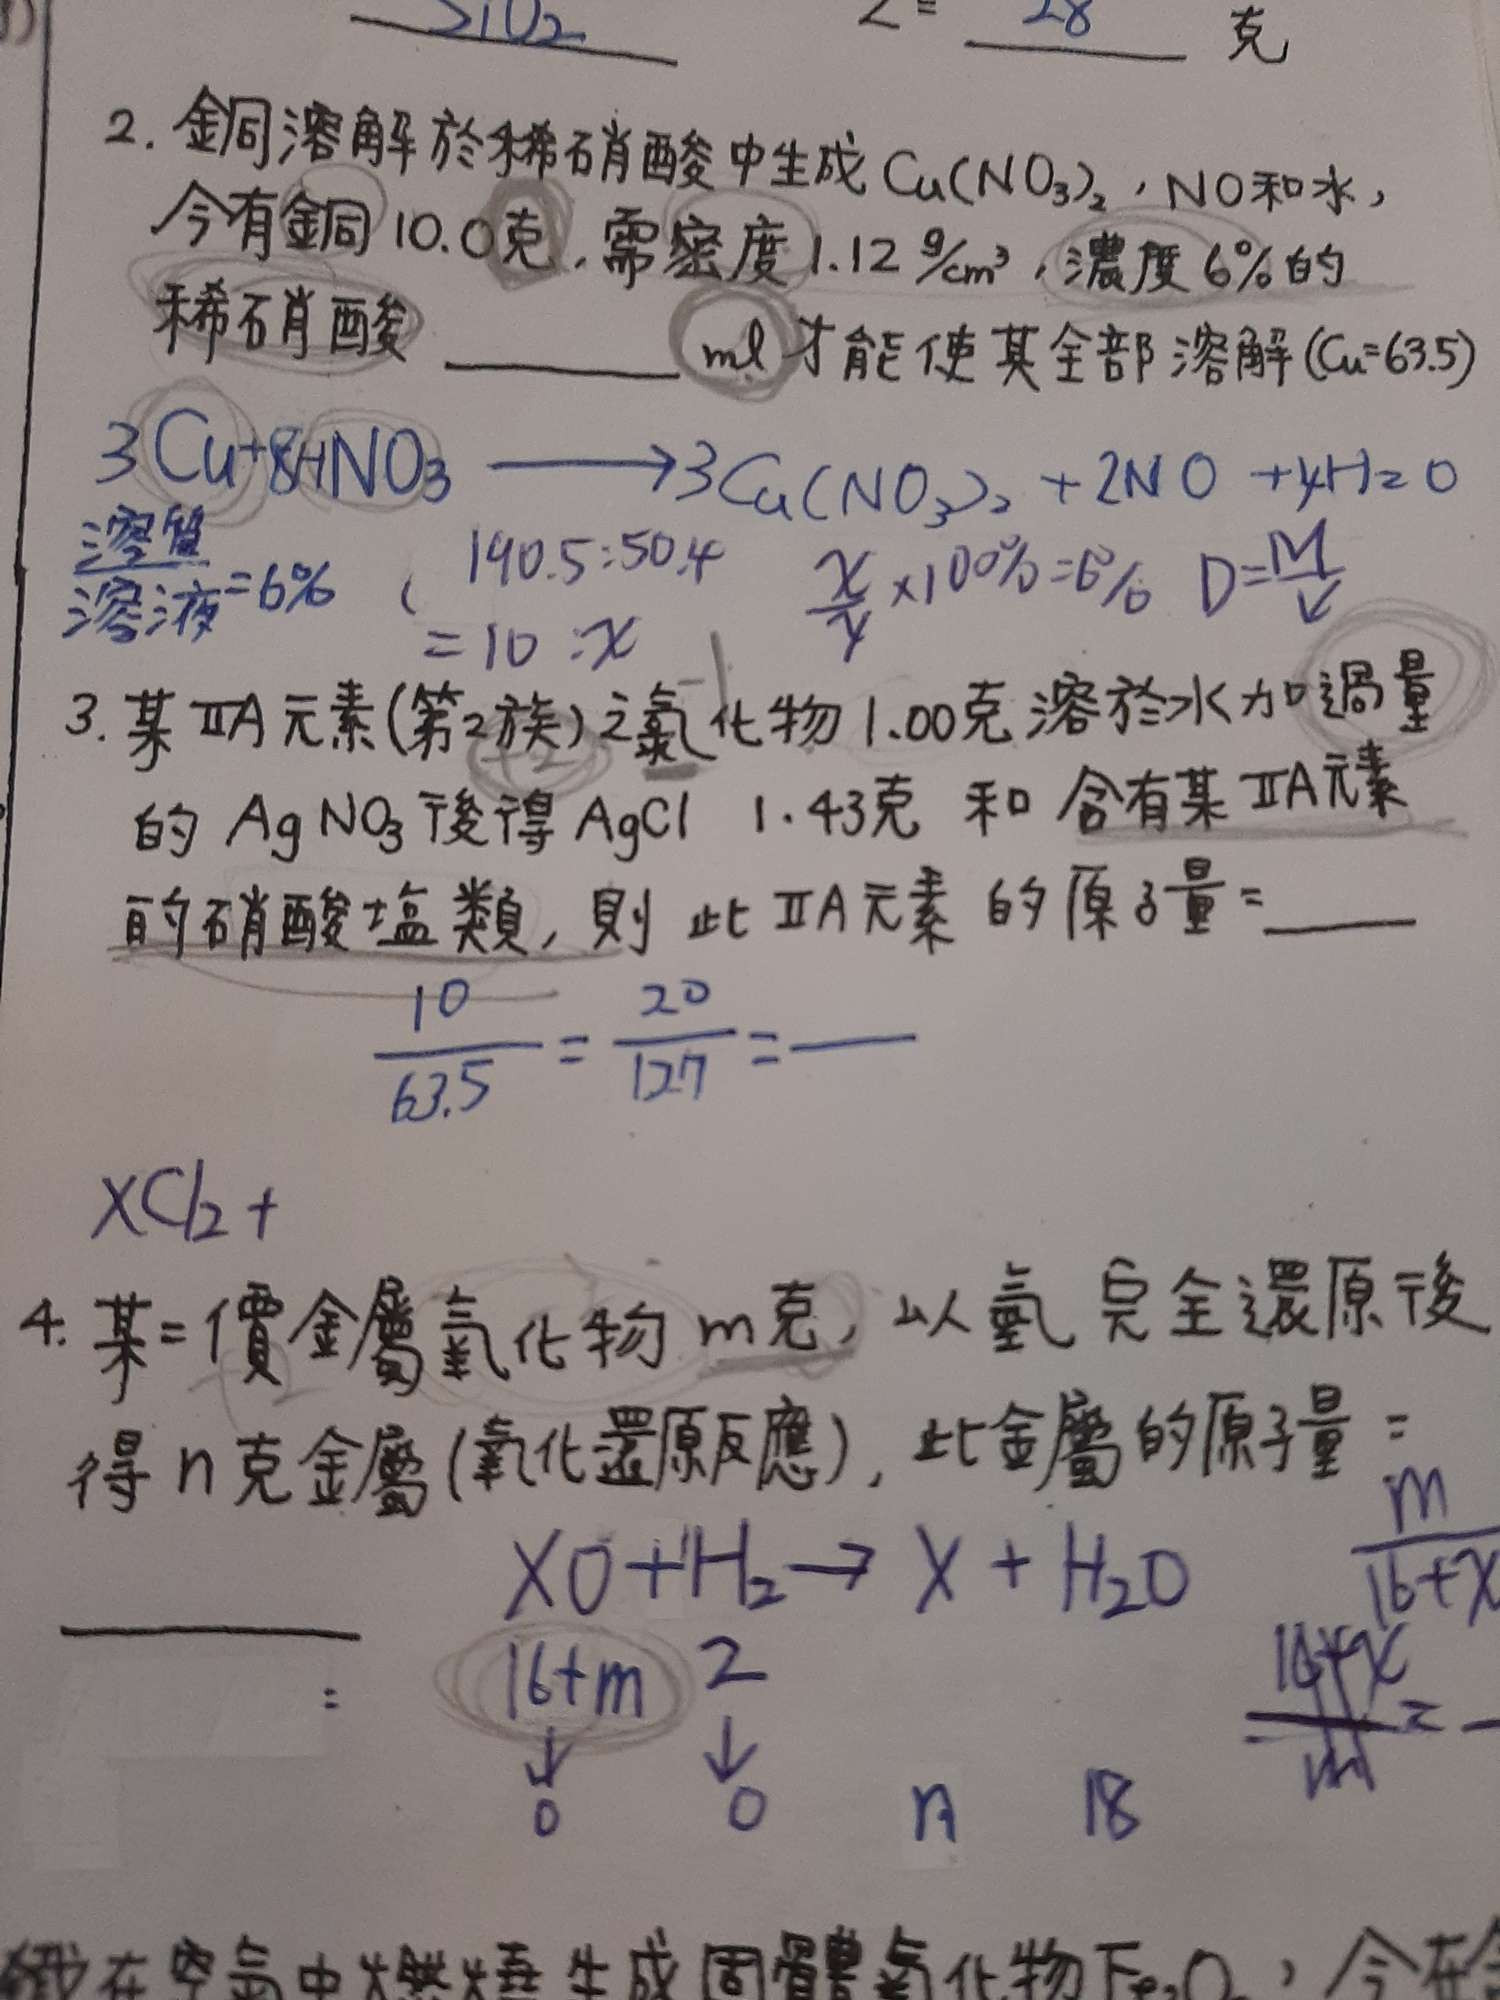 SiO2 2= 28 克
2. 銅溶解於稀硝酸中生成 Cu(NO3)2，NO和水，
今有銅10.0克，需密度1.12 g/cm³，濃度6%的
稀硝酸 ml 才能使其全部溶解(Cu=63.5)
3Cu+8HNO3 → 3Cu(NO3)2 + 2NO + 4H2O
溶質/溶液=6%
190.5:504
=10:x
x/y ×100%=6%
D=M/V
3. 某ⅡA元素(第2族)之氯化物1.00克溶於水加過量
-1
+2
的AgNO3後得AgCl 1.43克 和 含有某ⅡA元素
的硝酸塩類，則 此ⅡA元素 的原子量=
10/63.5 = 20/127 =
XCl2+
4. 某=價金屬氧化物 m克，以氫完全還原後
+2
得n克金屬(氧化還原反應)，此金屬的原子量=
XO+H2→X+H2O
m/16+x
16+m 2
↓ ↓
0 0 n 18
:
16+x/m =
鐵在空氣中燃燒生成固體氧化物Fe2O 今在